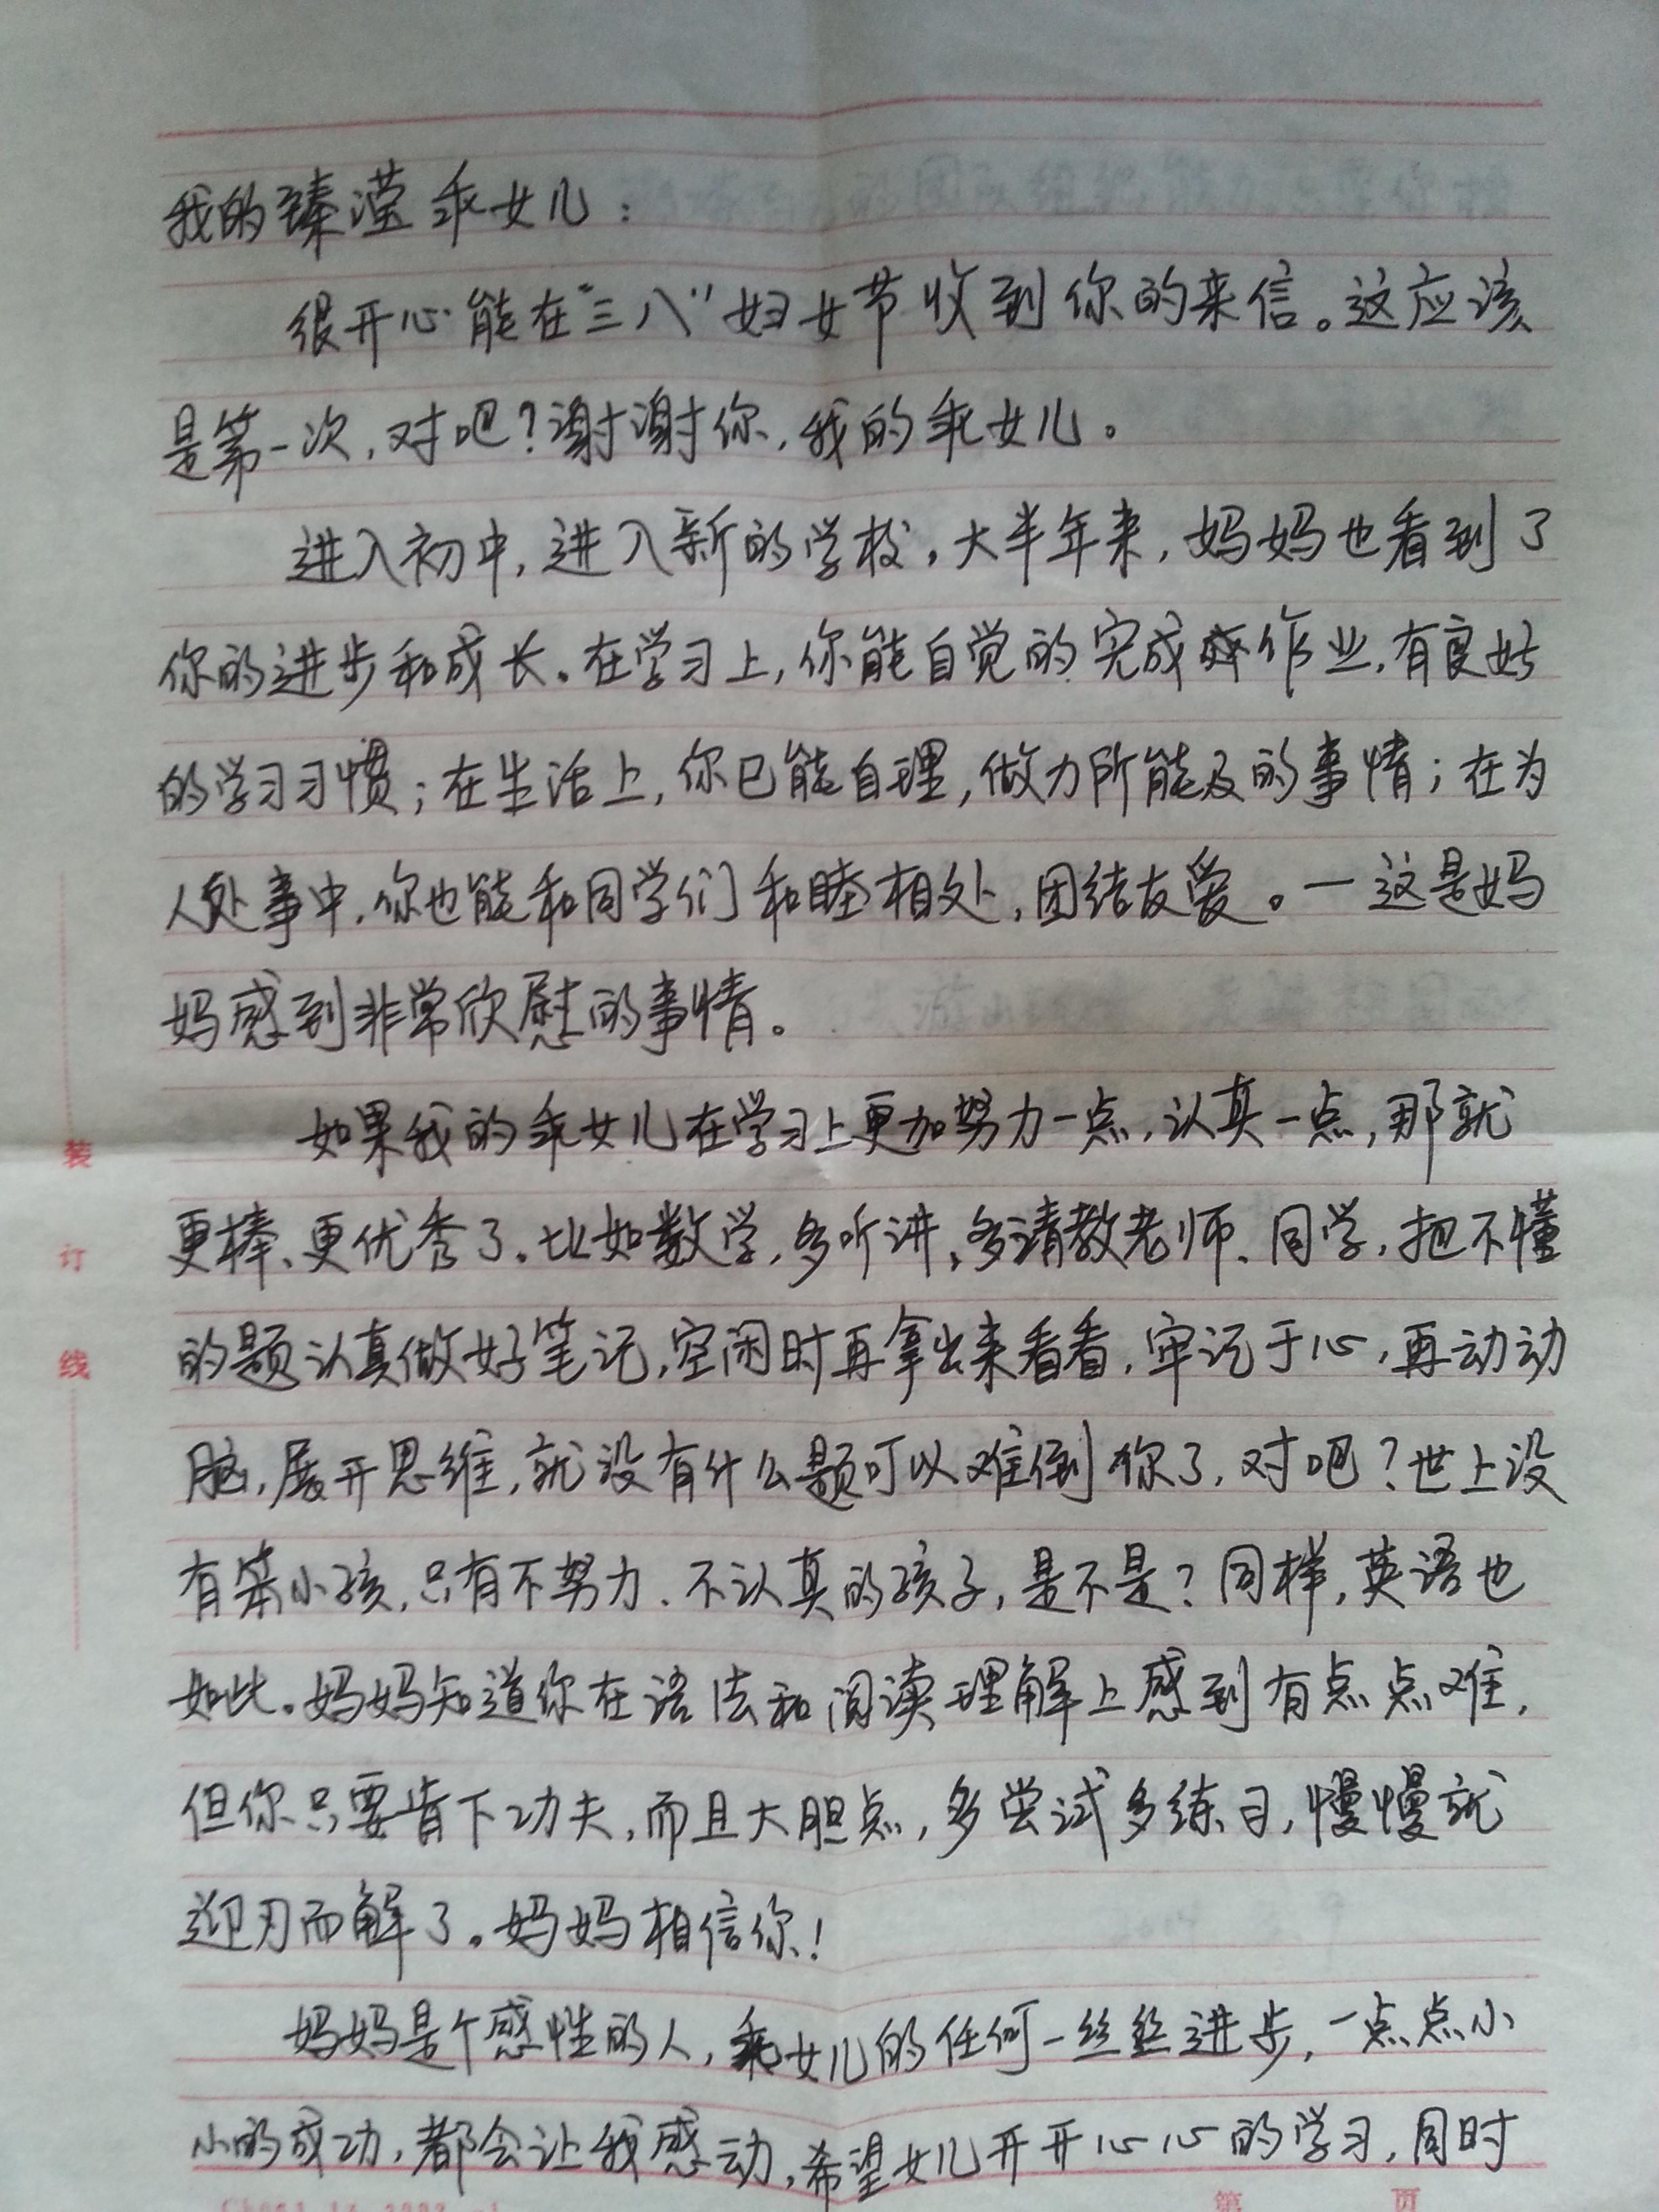 我的臻滢乖女儿：
很开心能在“三八”妇女节收到你的来信。这应该
是第一次，对吧？谢谢你，我的乖女儿。
进入初中，进入新的学校，大半年来，妈妈也看到了
你的进步和成长。在学习上，你能自觉的完成作业，有良好
的学习习惯；在生活上，你已能自理，做力所能及的事情；在为
人处事中，你也能和同学们和睦相处，团结友爱。—这是妈
妈感到非常欣慰的事情。
如果我的乖女儿在学习上更加努力一点，认真一点，那就
更棒、更优秀了。比如数学，多听讲，多请教老师、同学，把不懂
的题认真做好笔记，空闲时再拿出来看看，牢记于心，再动动
脑，展开思维，就没有什么题可以难倒你了，对吧？世上没
有笨小孩，只有不努力、不认真的孩子，是不是？同样，英语也
如此。妈妈知道你在语法和阅读理解上感到有点点难，
但你只要肯下功夫，而且大胆点，多尝试多练习，慢慢就
迎刃而解了。妈妈相信你！
妈妈是个感性的人，乖女儿的任何一丝丝进步，一点点小
小的成功，都会让我感动，希望女儿开开心心的学习，同时
装
订
线
第 页